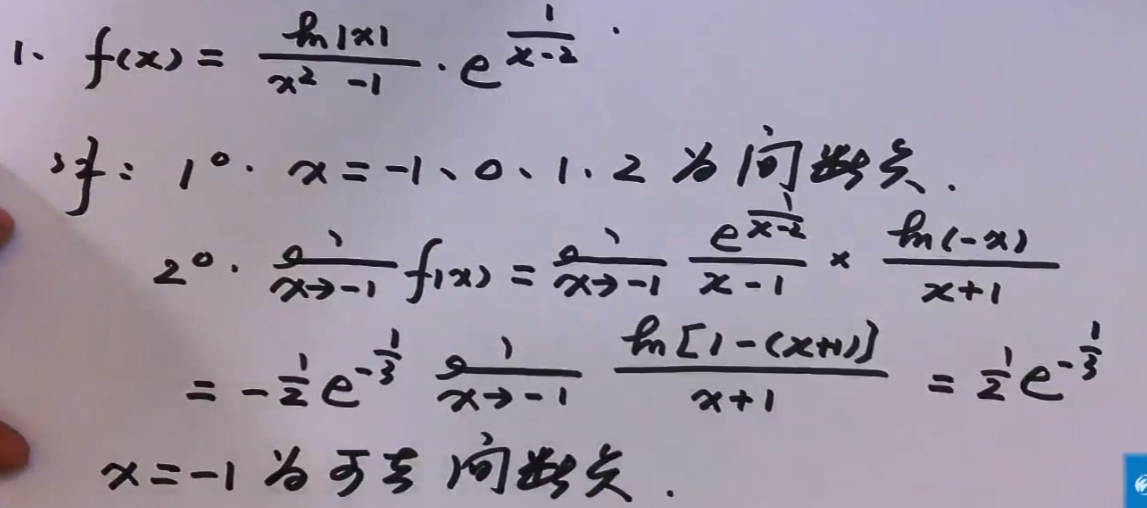 1. f(x) = \frac{ln|x|}{x² - 1} · e^{\frac{1}{x-2}}.
解: 1°. x = -1、0、1、2 为间断点.
2°. \lim_{x→-1} f(x) = \lim_{x→-1} \frac{e^{\frac{1}{x-2}}}{x-1} × \frac{ln(-x)}{x+1}
= -\frac{1}{2} e^{-\frac{1}{3}} \lim_{x→-1} \frac{ln[1-(x+1)]}{x+1} = \frac{1}{2} e^{-\frac{1}{3}}
x = -1 为可去间断点.